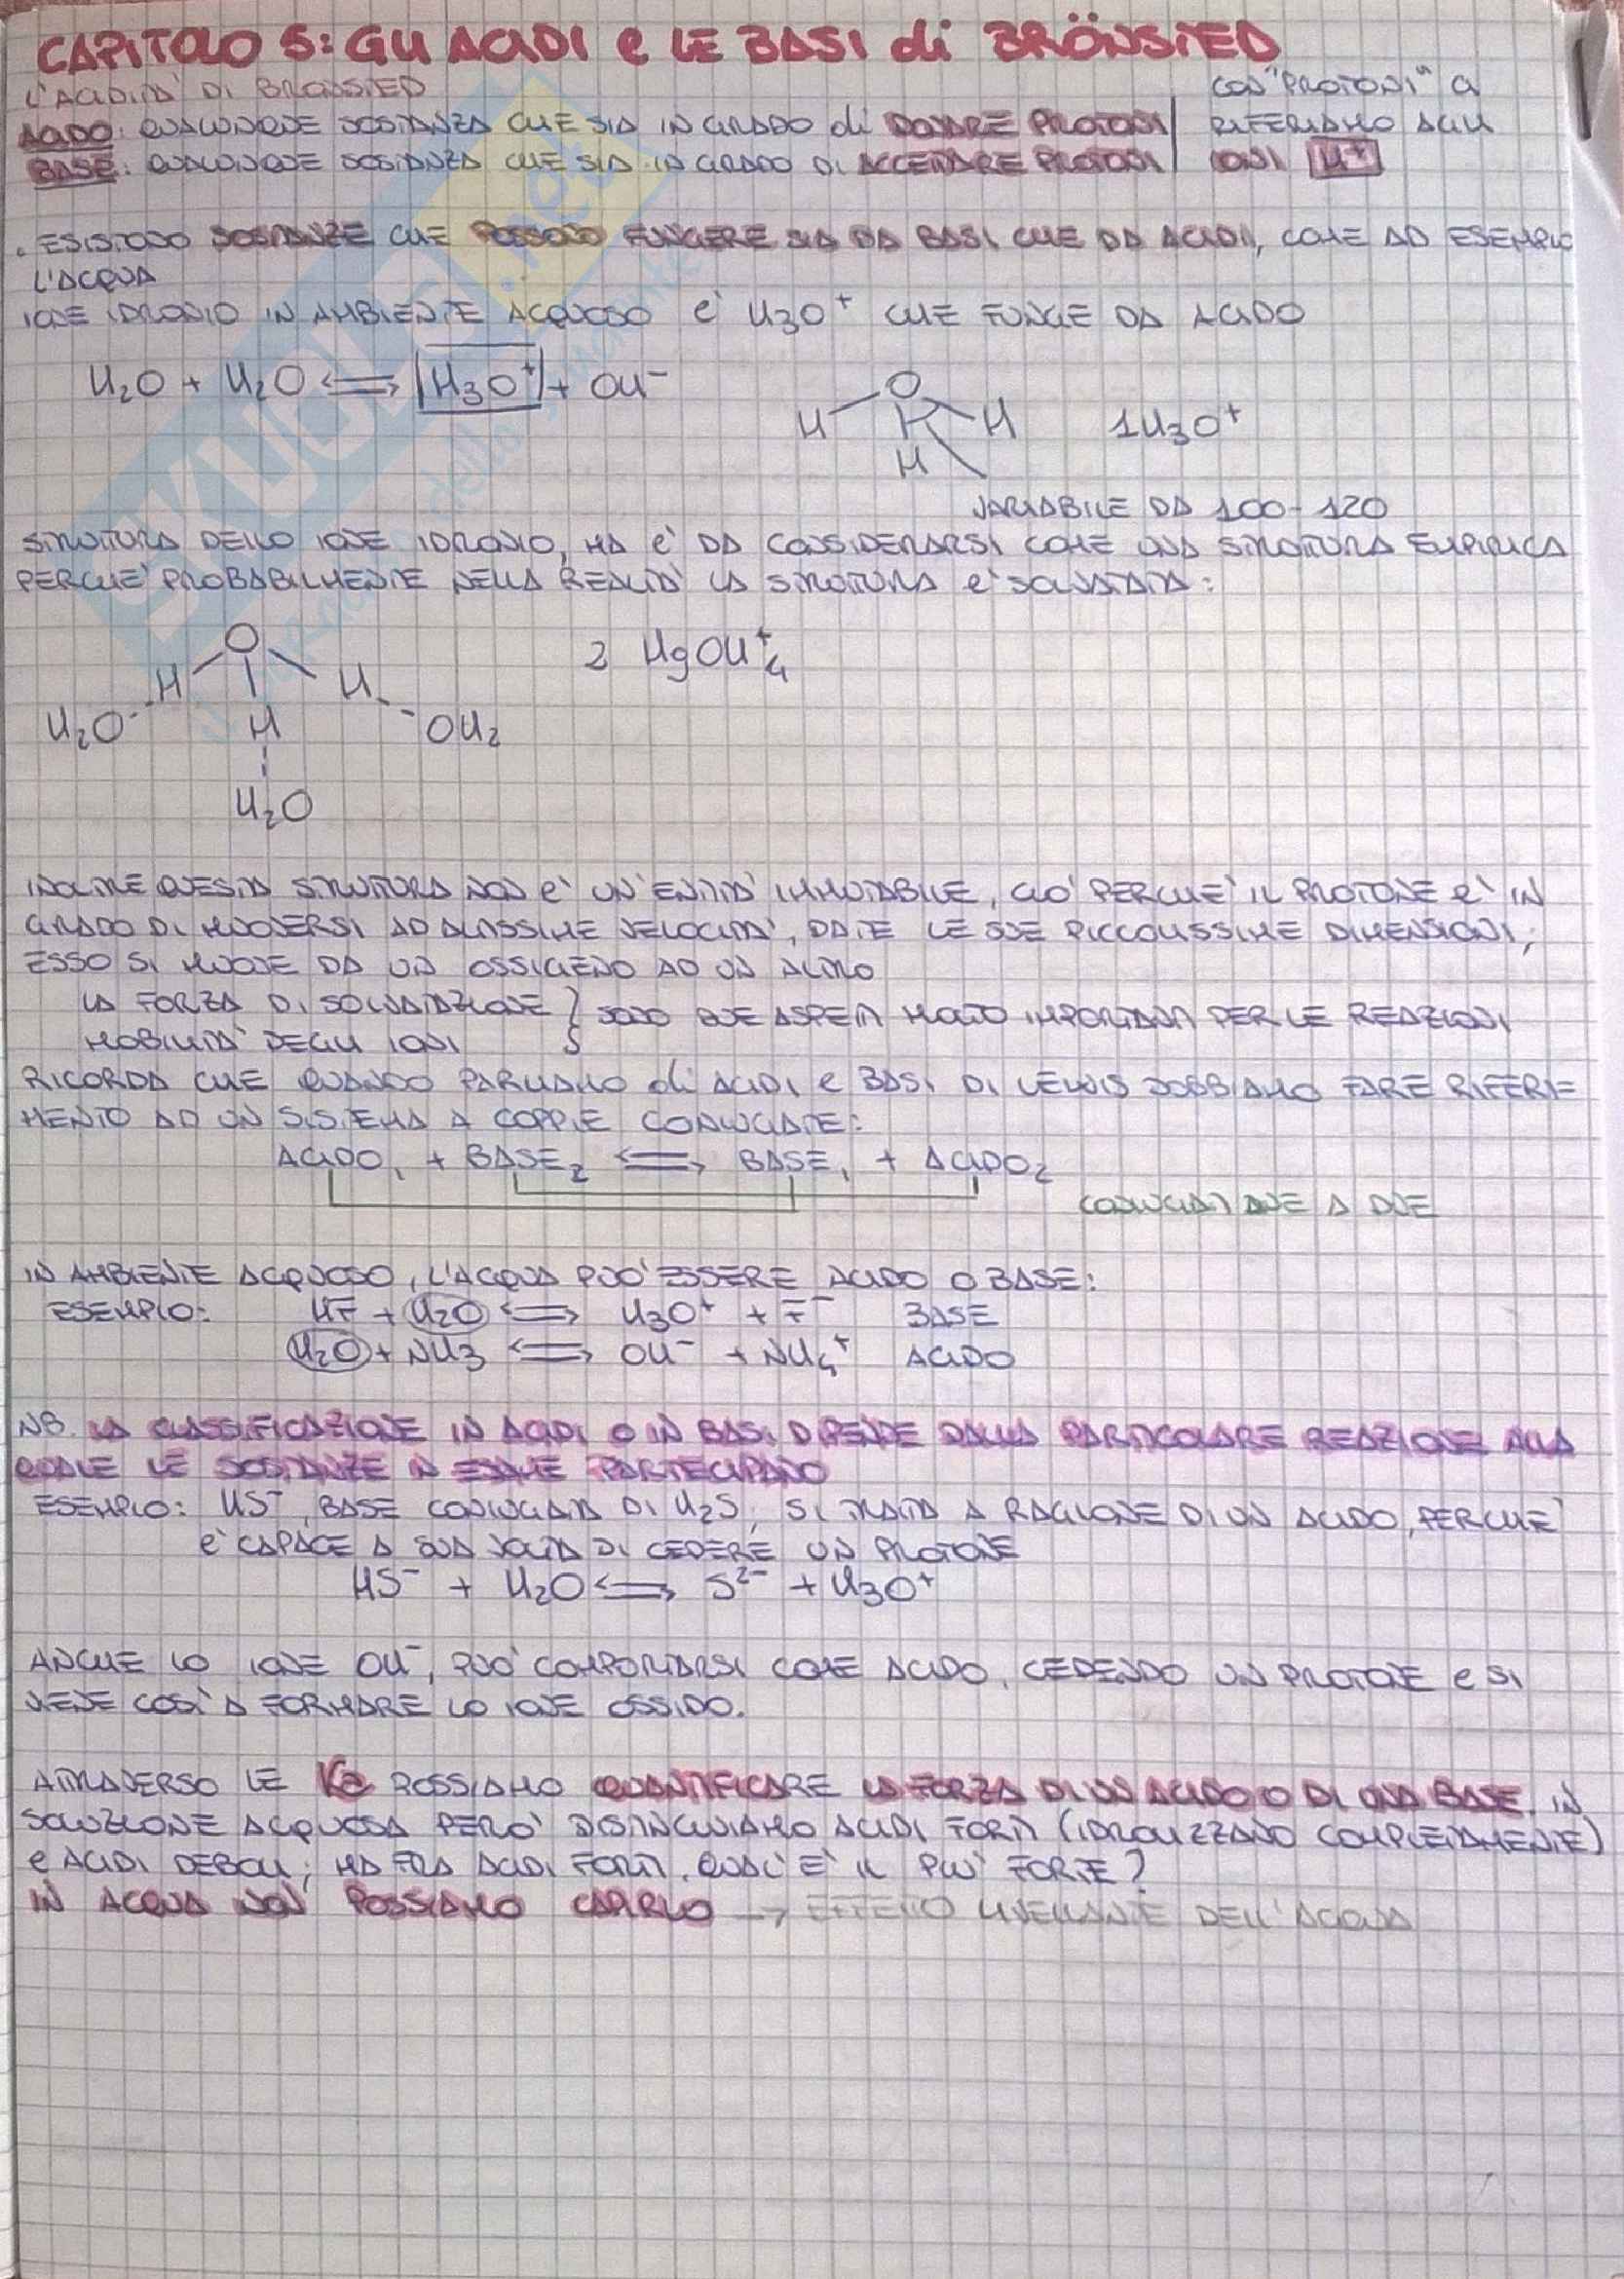 CAPITOLO 5: GLI ACIDI e LE BASI di BRÖNSTED
L'ACIDITA' DI BRONSTED
ACIDO: QUALUNQUE SOSTANZA CHE SIA IN GRADO di DONARE PROTONI
BASE: QUALUNQUE SOSTANZA CHE SIA IN GRADO DI ACCETTARE PROTONI
CON "PROTONI" CI
RIFERIAMO AGLI
IONI H+
. ESISTONO SOSTANZE CHE POSSONO FUNGERE SIA DA BASI CHE DA ACIDI, COME AD ESEMPIO
L'ACQUA
IONE IDRONIO IN AMBIENTE ACQUOSO e' H3O+ CHE FUNGE DA ACIDO
H2O + H2O ⇌ H3O+ + OH-
O
H H 1H3O+
H
VARIABILE DA 100-120
STRUTTURA DELLO IONE IDRONIO, MA e' DA CONSIDERARSI COME UNA STRUTTURA EMPIRICA
PERCHE' PROBABILMENTE NELLA REALTA' LA STRUTTURA e' SOLVATATA:
O
2 H9O4+
H H
H2O H OH2
H2O
INOLTRE QUESTA STRUTTURA NON e' UN'ENTITA' IMMUTABILE, CIO' PERCHE' IL PROTONE e' IN
GRADO DI MUOVERSI AD ALTISSIME VELOCITA', DATE LE SUE PICCOLISSIME DIMENSIONI;
ESSO SI MUOVE DA UN OSSIGENO AD UN ALTRO
LA FORZA DI SOLVATAZIONE } SONO DUE ASPETTI MOLTO IMPORTANTI PER LE REAZIONI
MOBILITA' DEGLI IONI
RICORDA CHE QUANDO PARLIAMO di ACIDI e BASI DI LEWIS DOBBIAMO FARE RIFERI=
MENTO AD UN SISTEMA A COPPIE CONIUGATE:
ACIDO1 + BASE2 ⇌ BASE1 + ACIDO2
CONIUGATI DUE A DUE
IN AMBIENTE ACQUOSO, L'ACQUA PUO' ESSERE ACIDO O BASE:
ESEMPIO: HF + H2O ⇌ H3O+ + F- BASE
H2O + NH3 ⇌ OH- + NH4+ ACIDO
NB. LA CLASSIFICAZIONE IN ACIDI O IN BASI DIPENDE DALLA PARTICOLARE REAZIONE ALLA
QUALE LE SOSTANZE IN ESAME PARTECIPANO
ESEMPIO: HS-, BASE CONIUGATA DI H2S; SI TRATTA A RAGIONE DI UN ACIDO, PERCHE'
e' CAPACE A SUA VOLTA DI CEDERE UN PROTONE
HS- + H2O ⇌ S2- + H3O+
ANCHE LO IONE OH-, PUO' COMPORTARSI COME ACIDO, CEDENDO UN PROTONE e SI
VIENE COSI' A FORMARE LO IONE OSSIDO.
ATTRAVERSO LE Ka POSSIAMO QUANTIFICARE LA FORZA DI UN ACIDO O DI UNA BASE. IN
SOLUZIONE ACQUOSA PERO' DISTINGUIAMO ACIDI FORTI (IDROLIZZANO COMPLETAMENTE)
e ACIDI DEBOLI; MA FRA ACIDI FORTI, QUAL'E' IL PIU' FORTE?
IN ACQUA NON POSSIAMO CAPIRLO → EFFETTO LIVELLANTE DELL'ACQUA